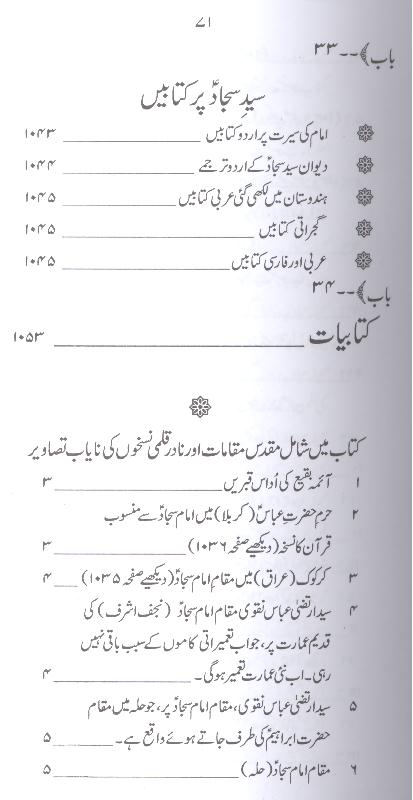 ۷۱
باب﴾۔۔۳۳
سیدِ سجادؑ پر کتابیں
امام کی سیرت پر اردو کتابیں ۱۰۴۳
دیوان سید سجادؑ کے اردو ترجمے ۱۰۴۴
ہندوستان میں لکھی گئی عربی کتابیں ۱۰۴۵
گجراتی کتابیں ۱۰۴۵
عربی اور فارسی کتابیں ۱۰۴۵
باب﴾۔۔۳۴
کتابیات ۱۰۵۳
کتاب میں شامل مقدس مقامات اور نادر قلمی نسخوں کی نایاب تصاویر
۱ آئمہ بقیع کی اُداس قبریں ۳
۲ حرمِ حضرت عباسؑ (کربلا) میں امام سجادؑ سے منسوب
قرآن کا نسخہ (دیکھیے صفحہ ۱۰۳۶) ۳
۳ کرکوک (عراق) میں مقامِ امام سجادؑ (دیکھیے صفحہ ۱۰۳۵) ۴
۴ سید ارتضیٰ عباس نقوی مقام امام سجادؑ (نجف اشرف) کی
قدیم عمارت پر، جو اب تعمیراتی کاموں کے سبب باقی نہیں
رہی۔ اب نئی عمارت تعمیر ہوگی۔ ۴
۵ سید ارتضیٰ عباس نقوی، مقام امام سجادؑ پر، جو حلہ میں مقام
حضرت ابراہیمؑ کی طرف جاتے ہوئے واقع ہے۔ ۵
۶ مقام امام سجادؑ (حلہ) ۵